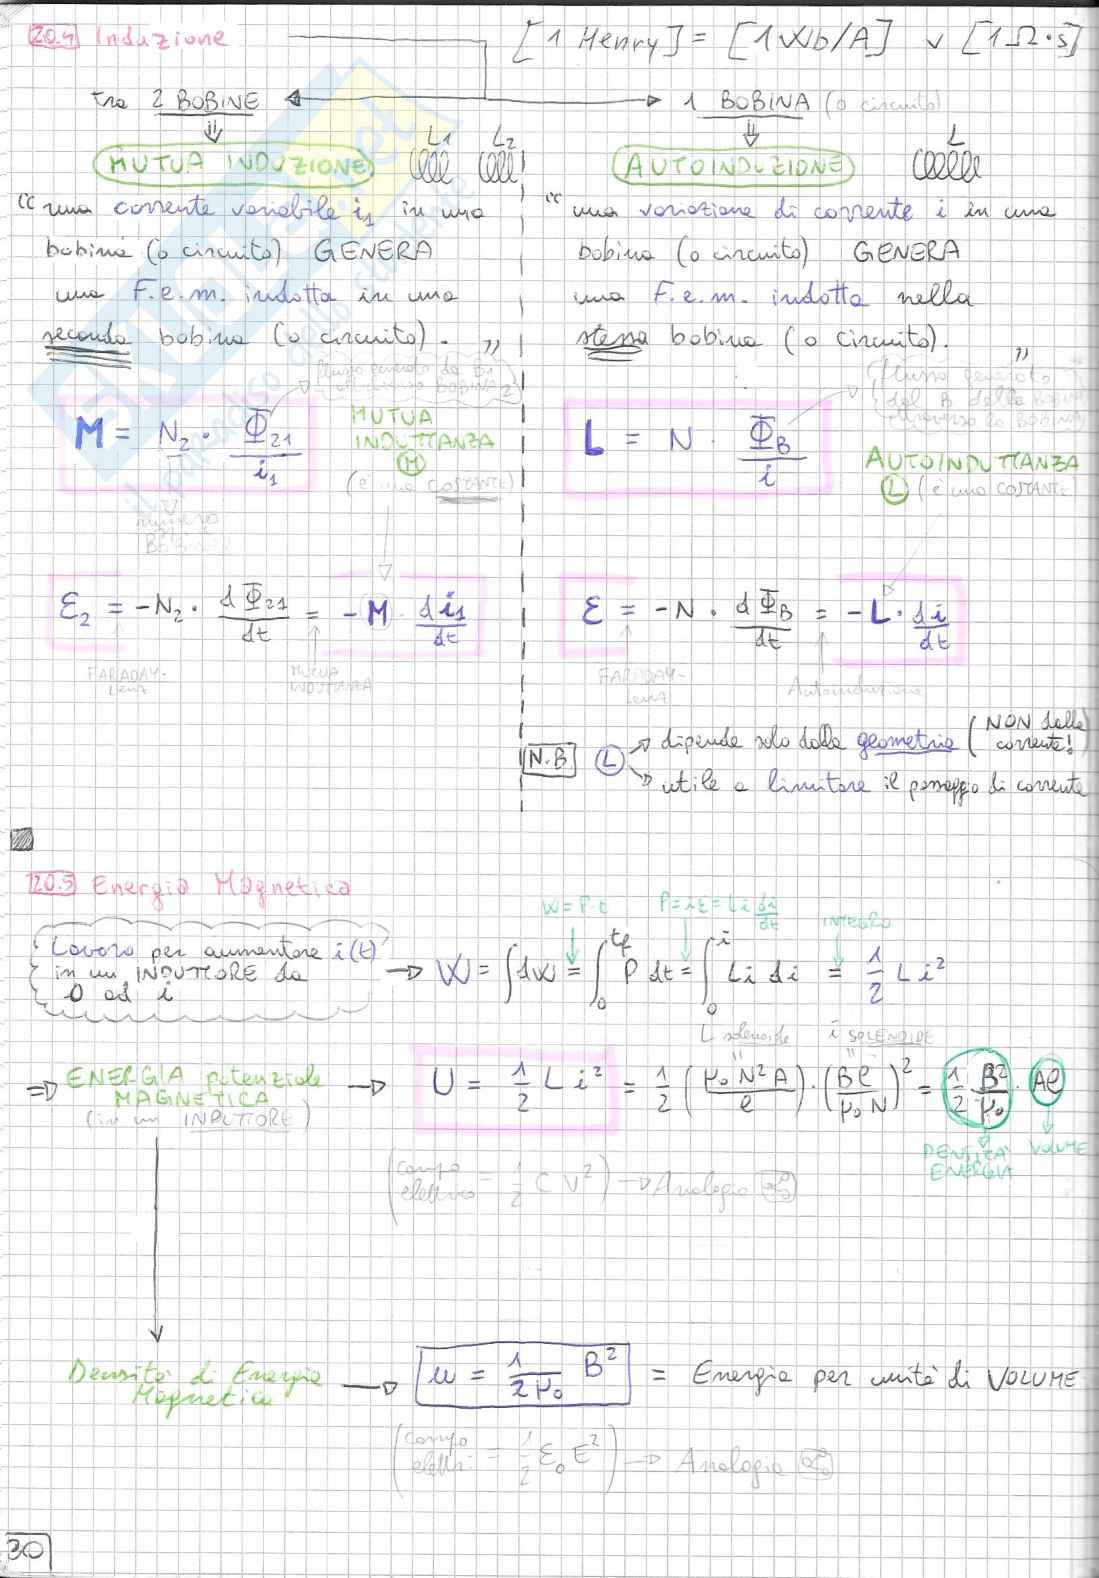 20.4 Induzione
[1 Henry] = [1 Wb/A] v [1 Ω·s]
tra 2 BOBINE
1 BOBINA (o circuito)
MUTUA INDUZIONE L1 L2
“ una corrente variabile i1 in una
bobina (o circuito) GENERA
una F.e.m. indotta in una
seconda bobina (o circuito). ”
M = N2 · Φ21 / i1
MUTUA
INDUTTANZA
M
(è una COSTANTE)
numero
ε2 = -N2 · dΦ21/dt = -M · di1/dt
FARADAY-
Lenz
MUTUA
INDUTTANZA
AUTOINDUZIONE L
“ una variazione di corrente i in una
bobina (o circuito) GENERA
una F.e.m. indotta nella
stessa bobina (o circuito). ”
flusso generato
dal B della BOBINA
attraverso la BOBINA
L = N · ΦB / i
AUTOINDUTTANZA
L (è una COSTANTE)
ε = -N · dΦB/dt = -L · di/dt
FARADAY-
Lenz
Autoinduzione
N.B. L dipende solo dalla geometria (NON dalla corrente!)
utile a limitare il passaggio di corrente
20.5 Energia Magnetica
Lavoro per aumentare i(t)
in un INDUTTORE da
0 ad i
W=Pt P=iε=Li di/dt INTEGRO
W = ∫dW = ∫0tf P dt = ∫0i Li di = 1/2 L i²
L solenoide i SOLENOIDE
ENERGIA potenziale
MAGNETICA
(in un INDUTTORE)
U = 1/2 L i² = 1/2 (μ0 N² A / l) · (Bl / μ0 N)² = 1/2 B²/μ0 · Al
DENSITÀ
ENERGIA
VOLUME
(campo elettrico = 1/2 C V²) → Analogia
Densità di Energia
Magnetica
u = 1/2μ0 B² = Energia per unità di VOLUME
(campo elettr. = 1/2 ε0 E²) → Analogia
30